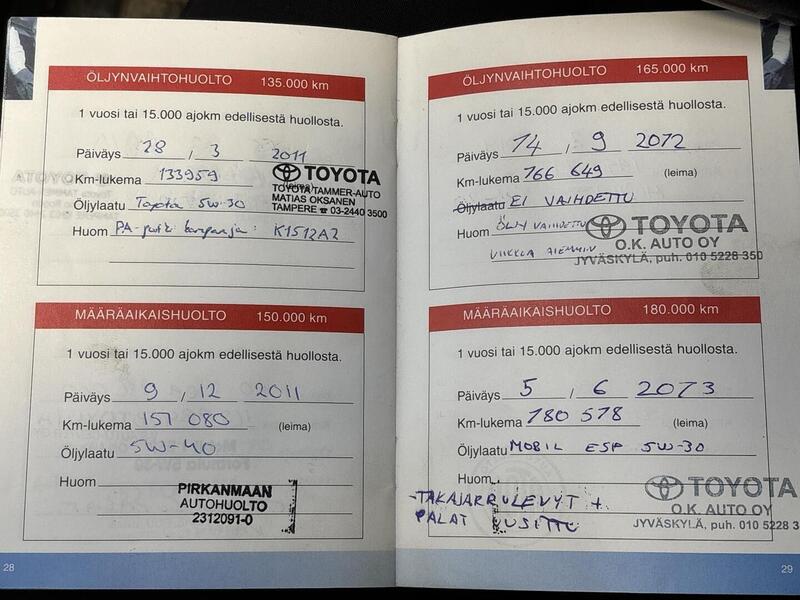 ÖLJYNVAIHTOHUOLTO 135.000 km
1 vuosi tai 15.000 ajokm edellisestä huollosta.
Päiväys 28 / 3 2011
Km-lukema 133959 (leima)
TOYOTA
TOYOTA TAMMER-AUTO
MATIAS OKSANEN
TAMPERE ☎ 03-2440 3500
Öljylaatu Toyota 5W-30
Huom PA-putki kampanja: K1512A2
MÄÄRÄAIKAISHUOLTO 150.000 km
1 vuosi tai 15.000 ajokm edellisestä huollosta.
Päiväys 9 / 12 2011
Km-lukema 151 080 (leima)
Öljylaatu 5W-40
Huom
PIRKANMAAN
AUTOHUOLTO
2312091-0
28
ÖLJYNVAIHTOHUOLTO 165.000 km
1 vuosi tai 15.000 ajokm edellisestä huollosta.
Päiväys 14 / 9 2012
Km-lukema 166 649 (leima)
Öljylaatu EI VAIHDETTU
Huom ÖLJY VAIHDETTU
VIIKKOA AIEMMIN
TOYOTA
O.K. AUTO OY
JYVÄSKYLÄ, puh. 010 5228 350
MÄÄRÄAIKAISHUOLTO 180.000 km
1 vuosi tai 15.000 ajokm edellisestä huollosta.
Päiväys 5 / 6 2013
Km-lukema 180 578 (leima)
Öljylaatu MOBIL ESP 5W-30
Huom
-TAKAJARRULEVYT +
PALAT UUSITTU
TOYOTA
O.K. AUTO OY
JYVÄSKYLÄ, puh. 010 5228 3
29